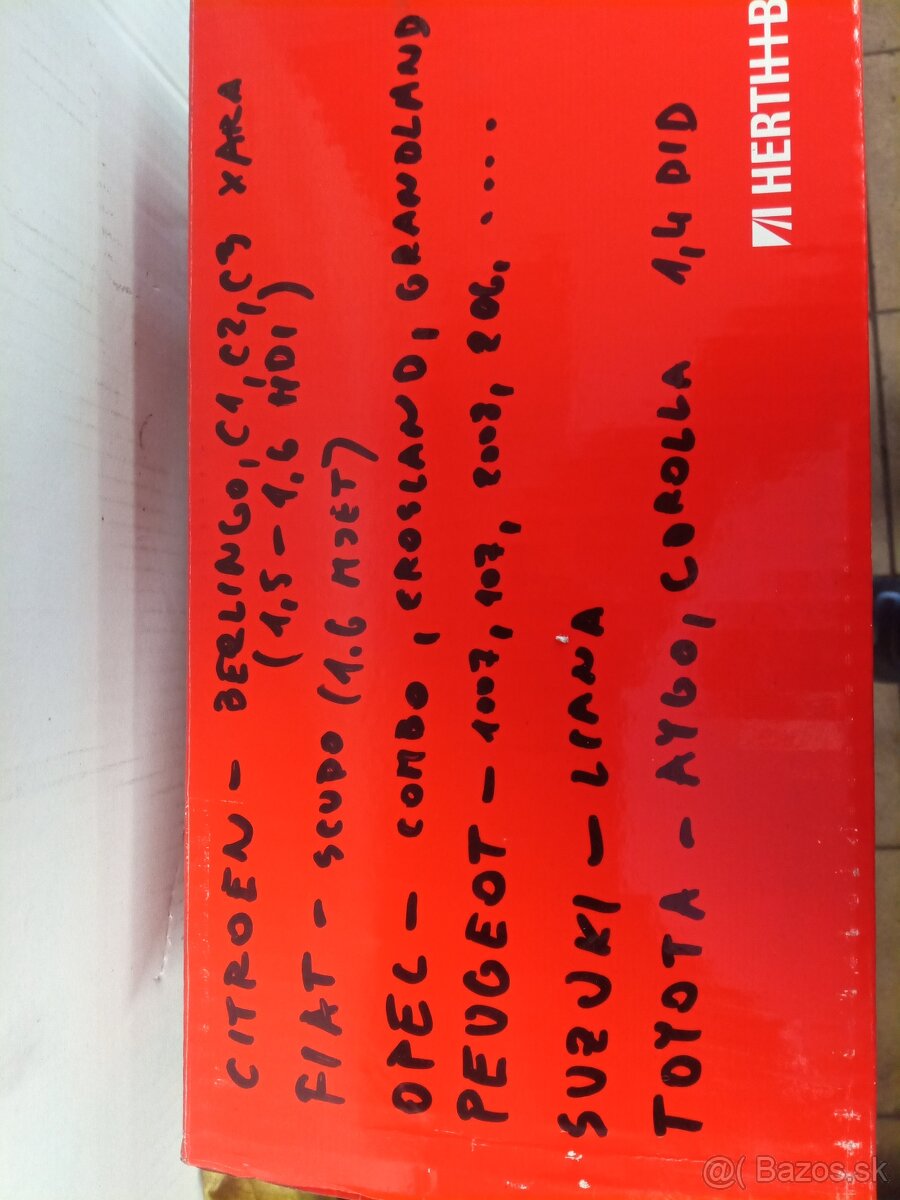 CITROEN - BERLINGO, C1, C2, C3 XARA
(1,5 - 1.6 HDI)
FIAT - SCUDO (1.6 MJET)
OPEL - COMBO, CROSLAND, GRANDLAND
PEUGEOT - 1007, 107, 2008, 206, ....
SUZUKI - LIANA
TOYOTA - AYGO, COROLLA 1,4 DID
HERTH+B
@( Bazos.sk